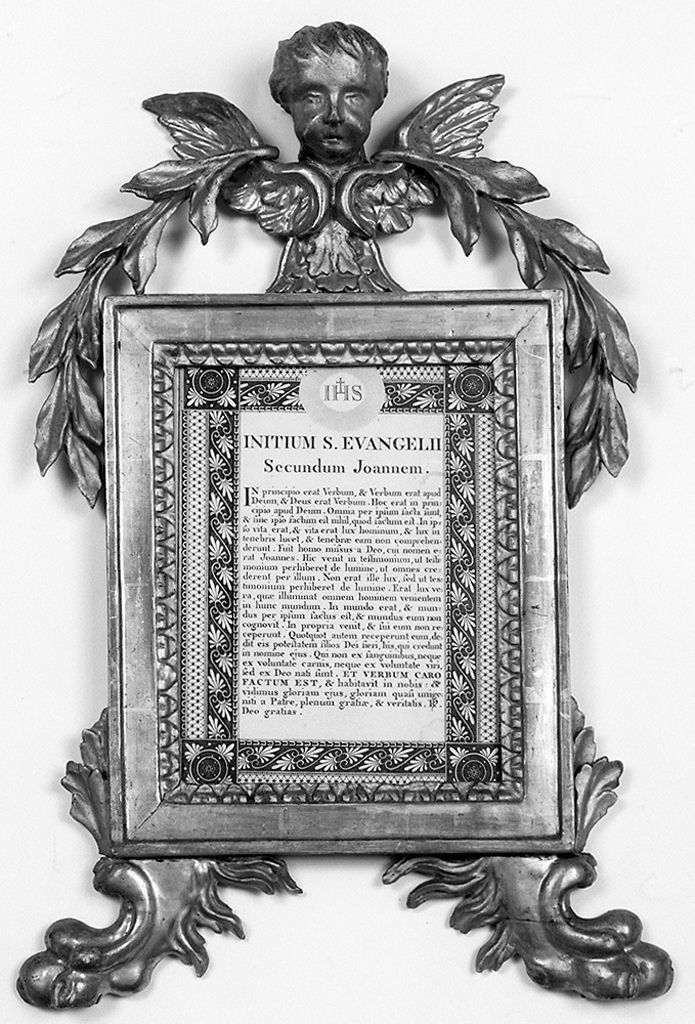 IHS
INITIUM S. EVANGELII
Secundum Joannem.
IN principio erat Verbum, & Verbum erat apud
Deum, & Deus erat Verbum. Hoc erat in prin-
cipio apud Deum. Omnia per ipsum facta sunt,
& sine ipso factum est nihil, quod factum est. In ip-
so vita erat, & vita erat lux hominum, & lux in
tenebris lucet, & tenebræ eam non comprehen-
derunt. Fuit homo missus a Deo, cui nomen e-
rat Joannes. Hic venit in testimonium, ut testi-
monium perhiberet de lumine, ut omnes cre-
derent per illum. Non erat ille lux, sed ut tes-
timonium perhiberet de lumine. Erat lux ve-
ra, quæ illuminat omnem hominem venientem
in hunc mundum. In mundo erat, & mun-
dus per ipsum factus est, & mundus eum non
cognovit. In propria venit, & sui eum non re-
ceperunt. Quotquot autem receperunt eum, de-
dit eis potestatem filios Dei fieri, his, qui credunt
in nomine ejus. Qui non ex sanguinibus, neque
ex voluntate carnis, neque ex voluntate viri,
sed ex Deo nati sunt. ET VERBUM CARO
FACTUM EST, & habitavit in nobis: &
vidimus gloriam ejus, gloriam quasi unige-
niti a Patre, plenum gratiæ, & veritatis. ℟.
Deo gratias.